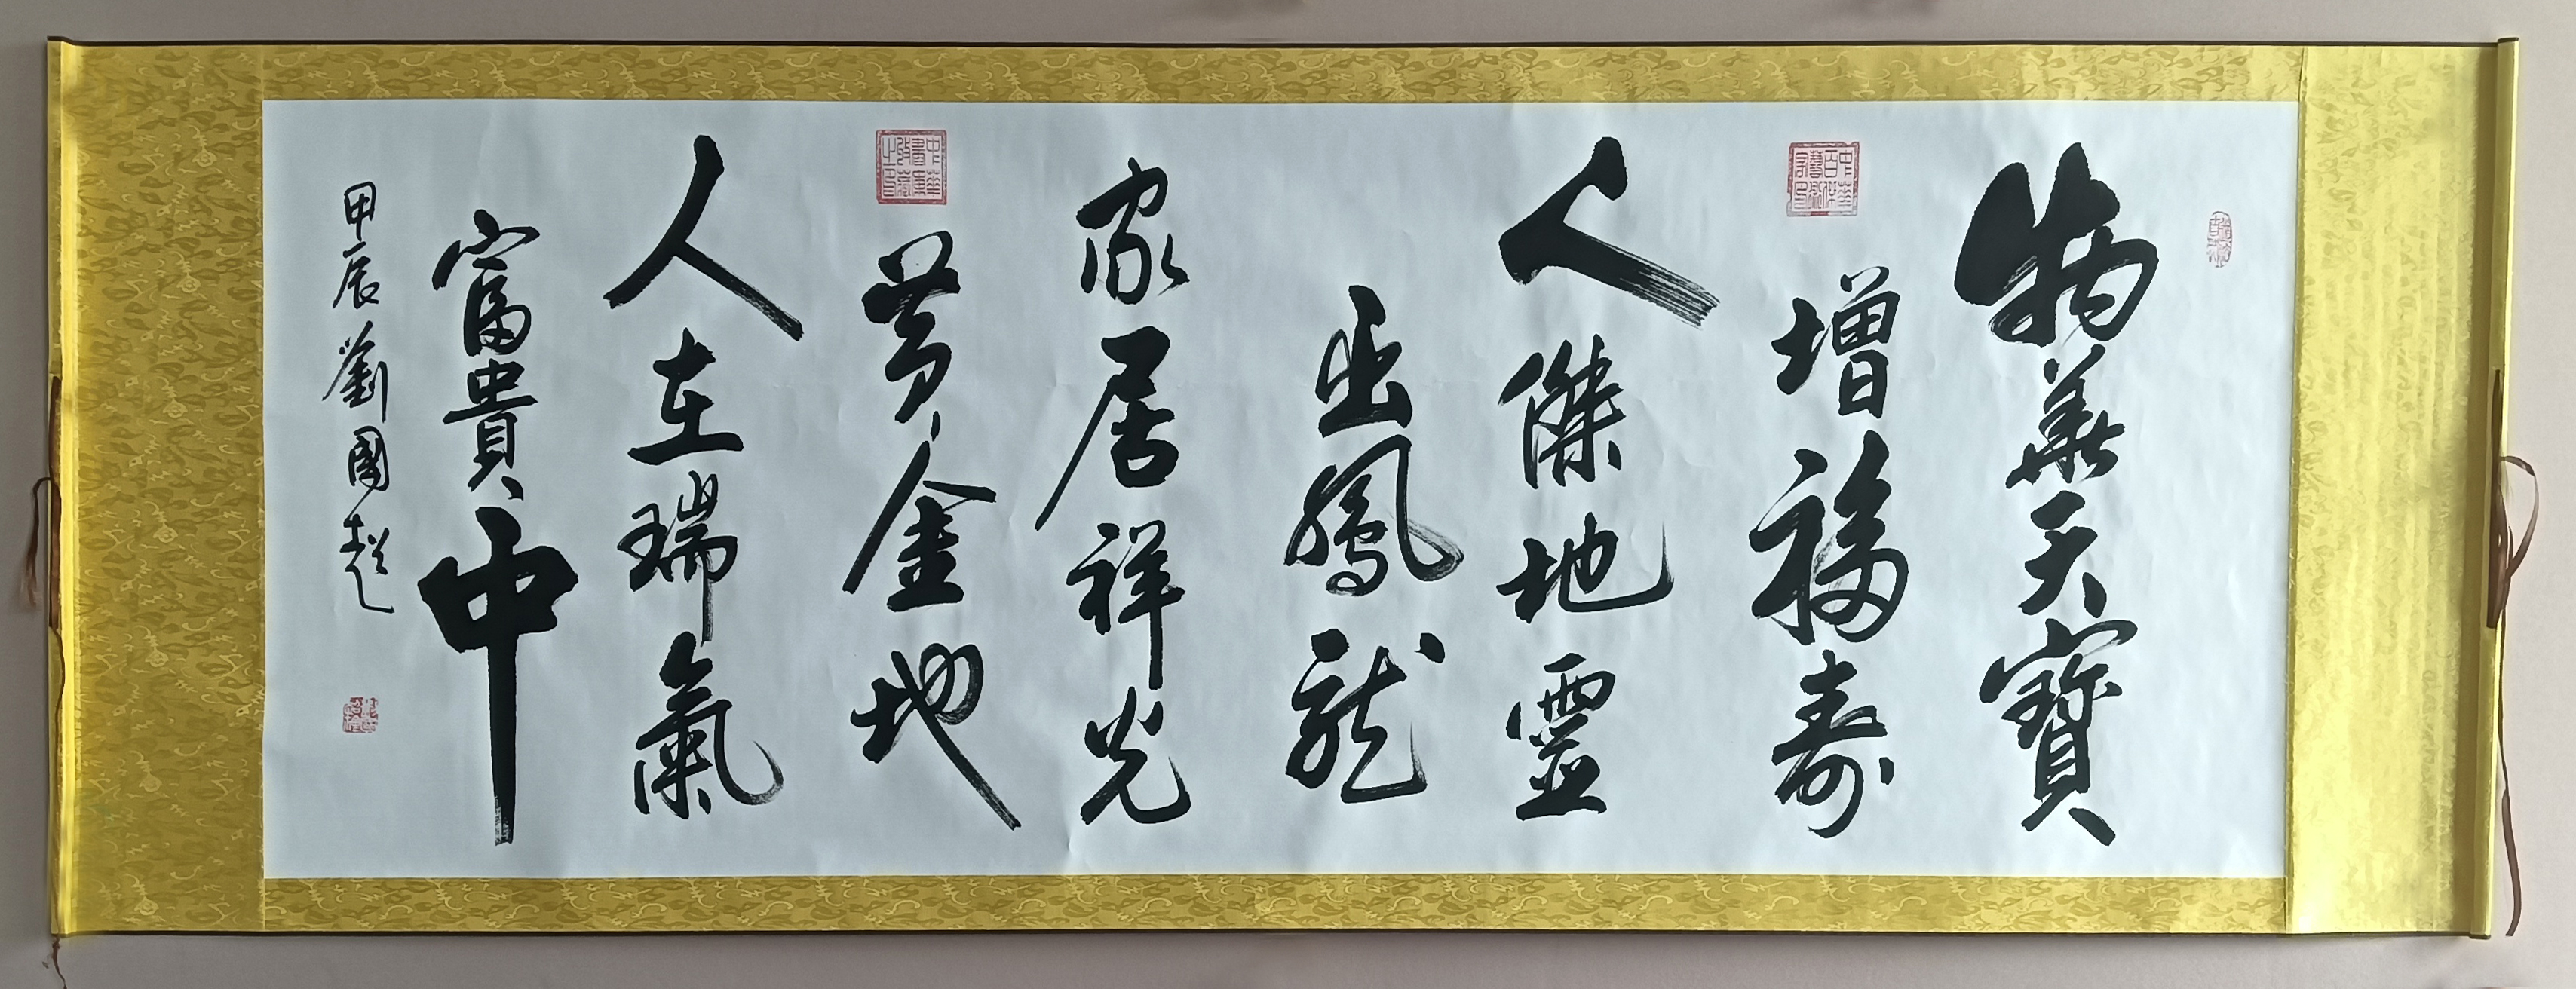 物華天寶
增福壽
人傑地靈
出鳳龍
家居祥光
黃金地
人在瑞氣
富貴中
甲辰劉國超